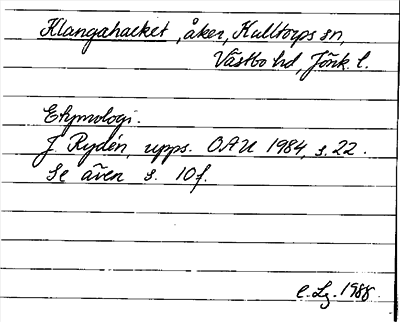 Klangahacket, åker, Kulltorps sn,
Västbo hd, Jönk. l.
Etymologi.
J. Rydén, upps. OAU 1984, s. 22.
Se även s. 10f.
C. Lg. 1988.